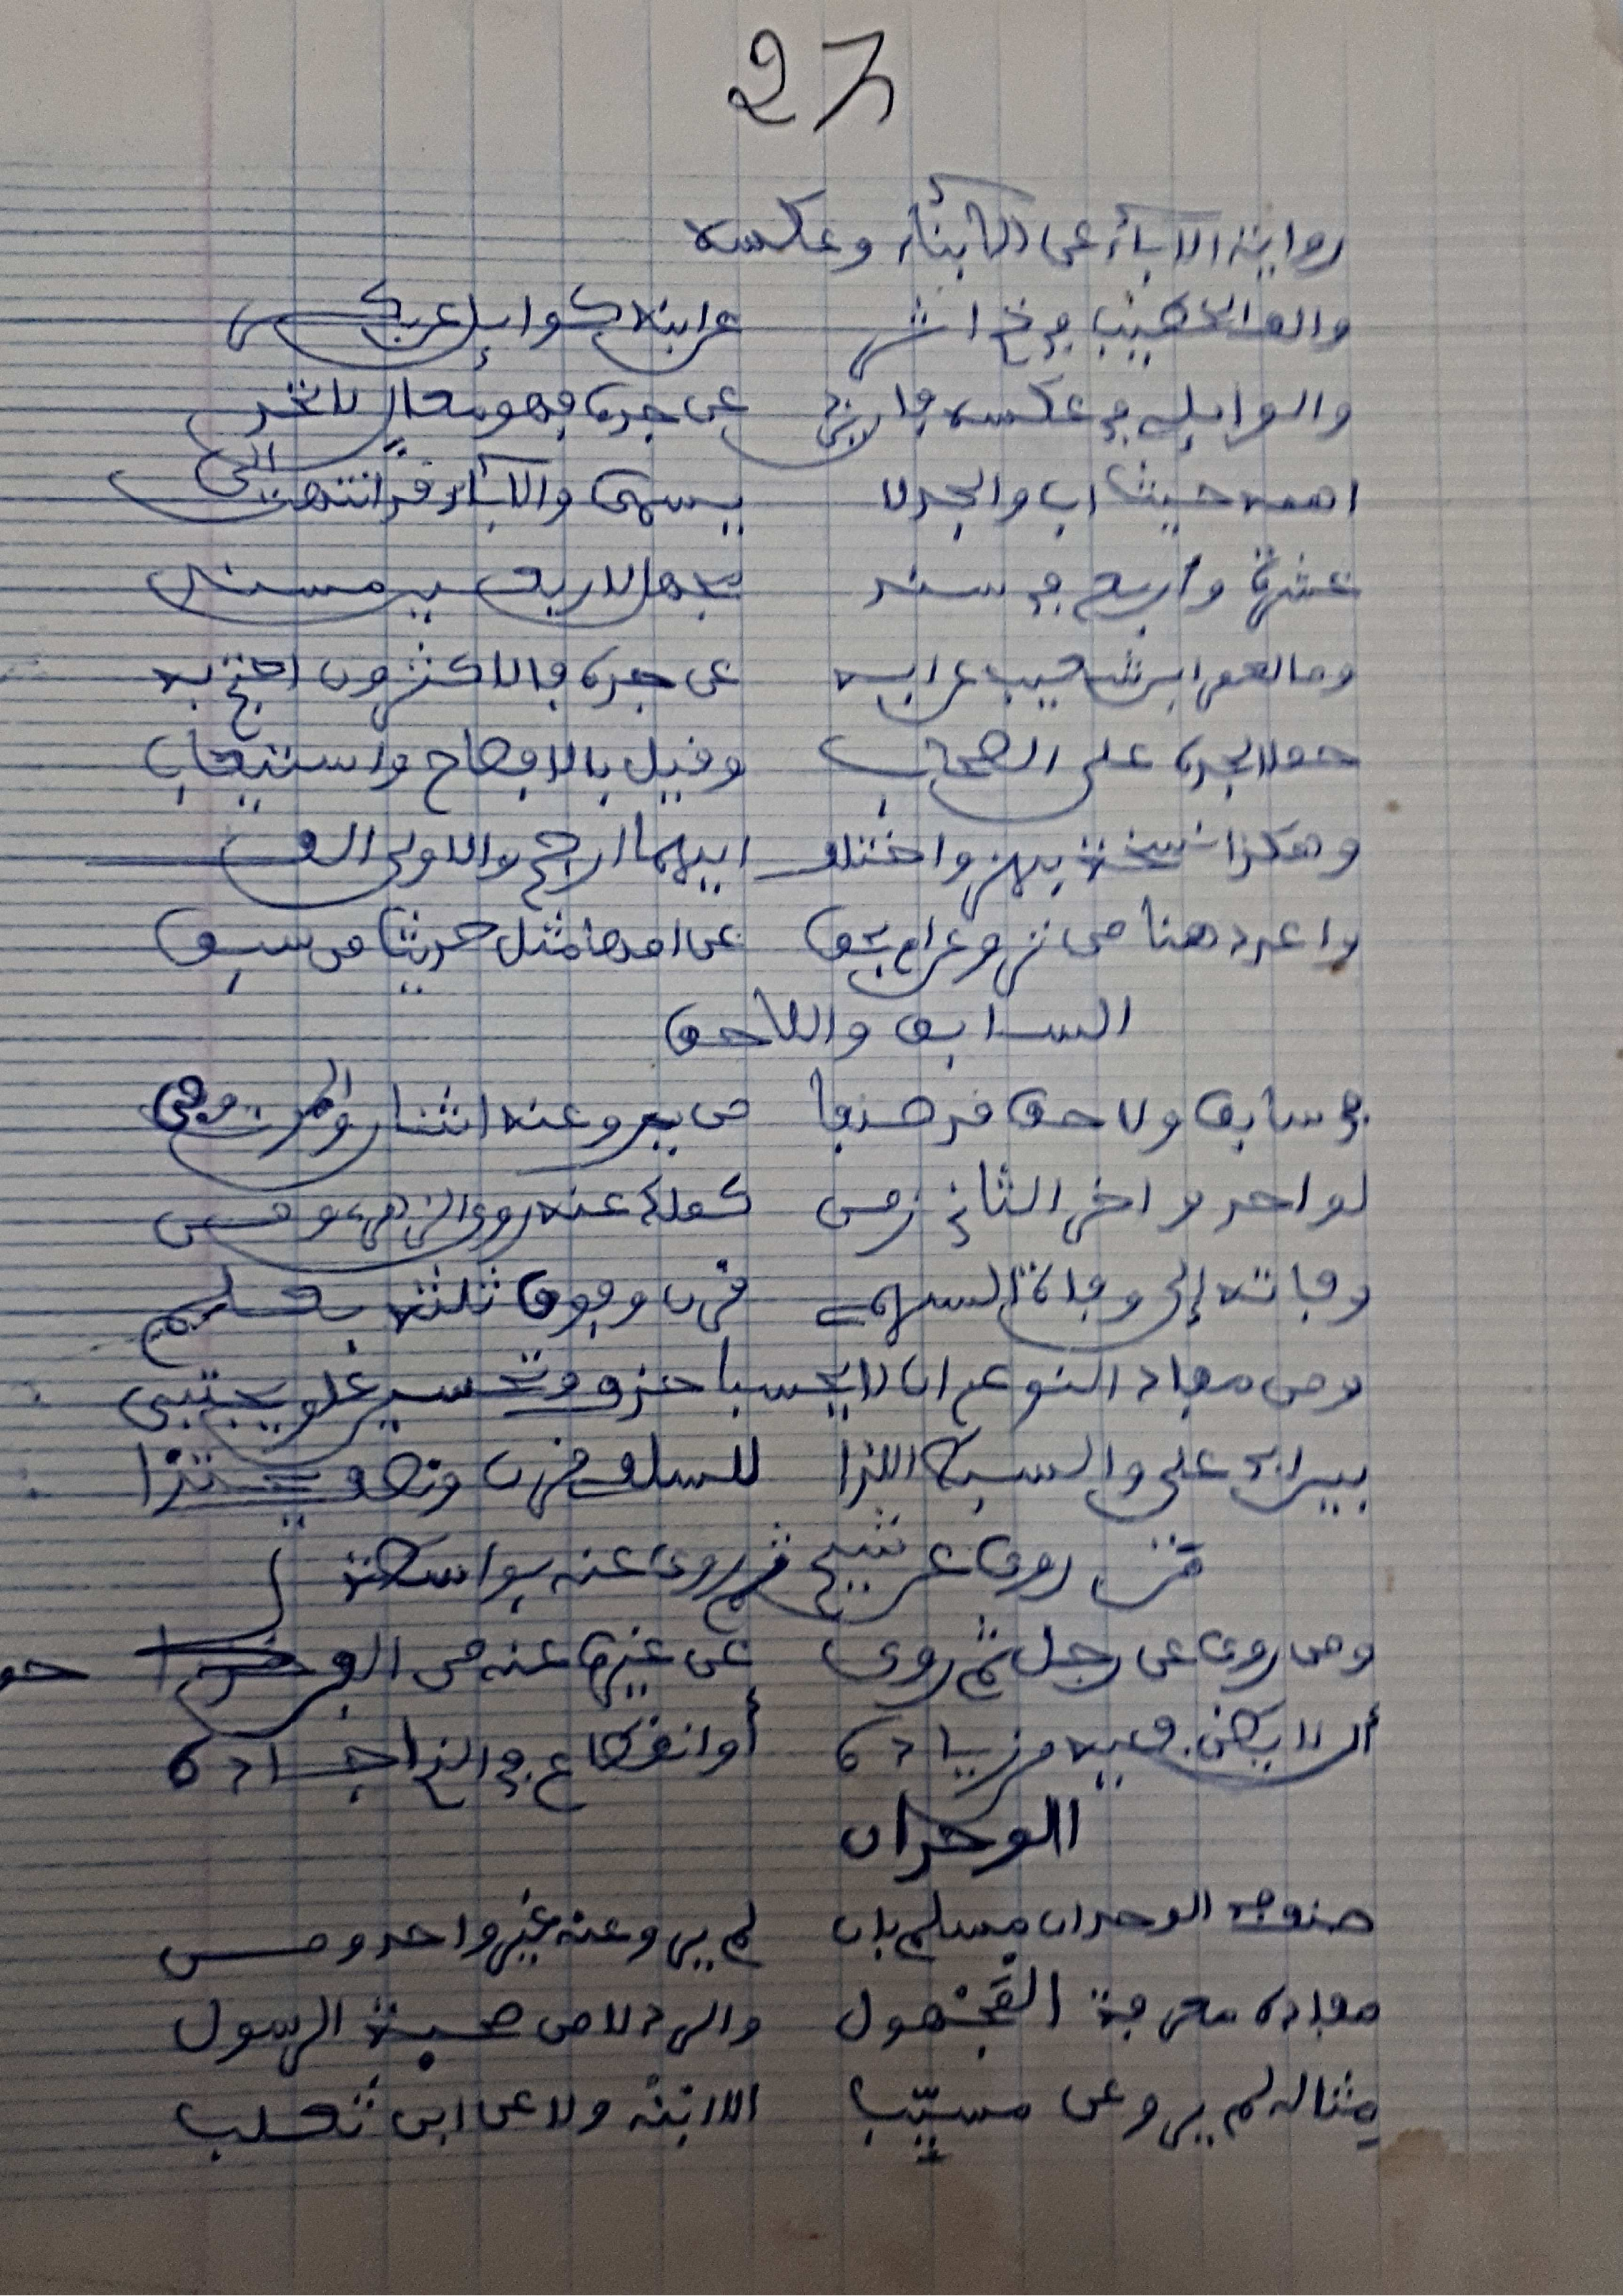 27
رواية الآباء عن الأبناء وعكسه
والف الخطيب في خ اثر عن ابنه كوايل عن بكر
والوايلي في عكسه فان يزد عن جده فهو معال لا تخر
اهمه حيث اب والجد لا يسمى والآباء قد انتهت الى
عشرة واربع في سند يجهل لاربعين مسند
وما لعمرو ابن شعيب عن ابيه عن جده فالاكثرون احتج به
حملا لجده على الصحاب وقيل بالافصاح واستيعاب
وهكذا نسخة بهز واختلف ايهما ارجح والاولى الف
واعدد هنا من تروي عن ام بحق عن امها مثل حديث من سبق
السابق واللاحق
في سابق ولاحق قد صنفا من يرو عنه اثنان والموت وفى
لواحد واخر الثاني زمن كملك عنه روى الزهري ومن
وفاته إلى وفاة السهمي قرن وفوق ثلثه بعلم
ومن مفاد النوع ان لا يحسبا حذف وتحسين علو يجتبى
بين ابي علي والسبط اللذا للسلفي قرن ونصف يحتذا
من روى عن شيخ ثم روى عنه بواسطة
ومن روى عن رجل ثم روى عن غيره عنه من الفن حو
أن لا يظن فيه من زيادة أو انقطاع في الذي اجاده
الوحدان
صنف في الوحدان مسلم بان لم يرو عنه غير واحد ومن
مفاده معرفة المجهول والرد لا من صحبة الرسول
مثاله لم يرو عن مسيّب الا ابنه ولا عن ابن تغلب